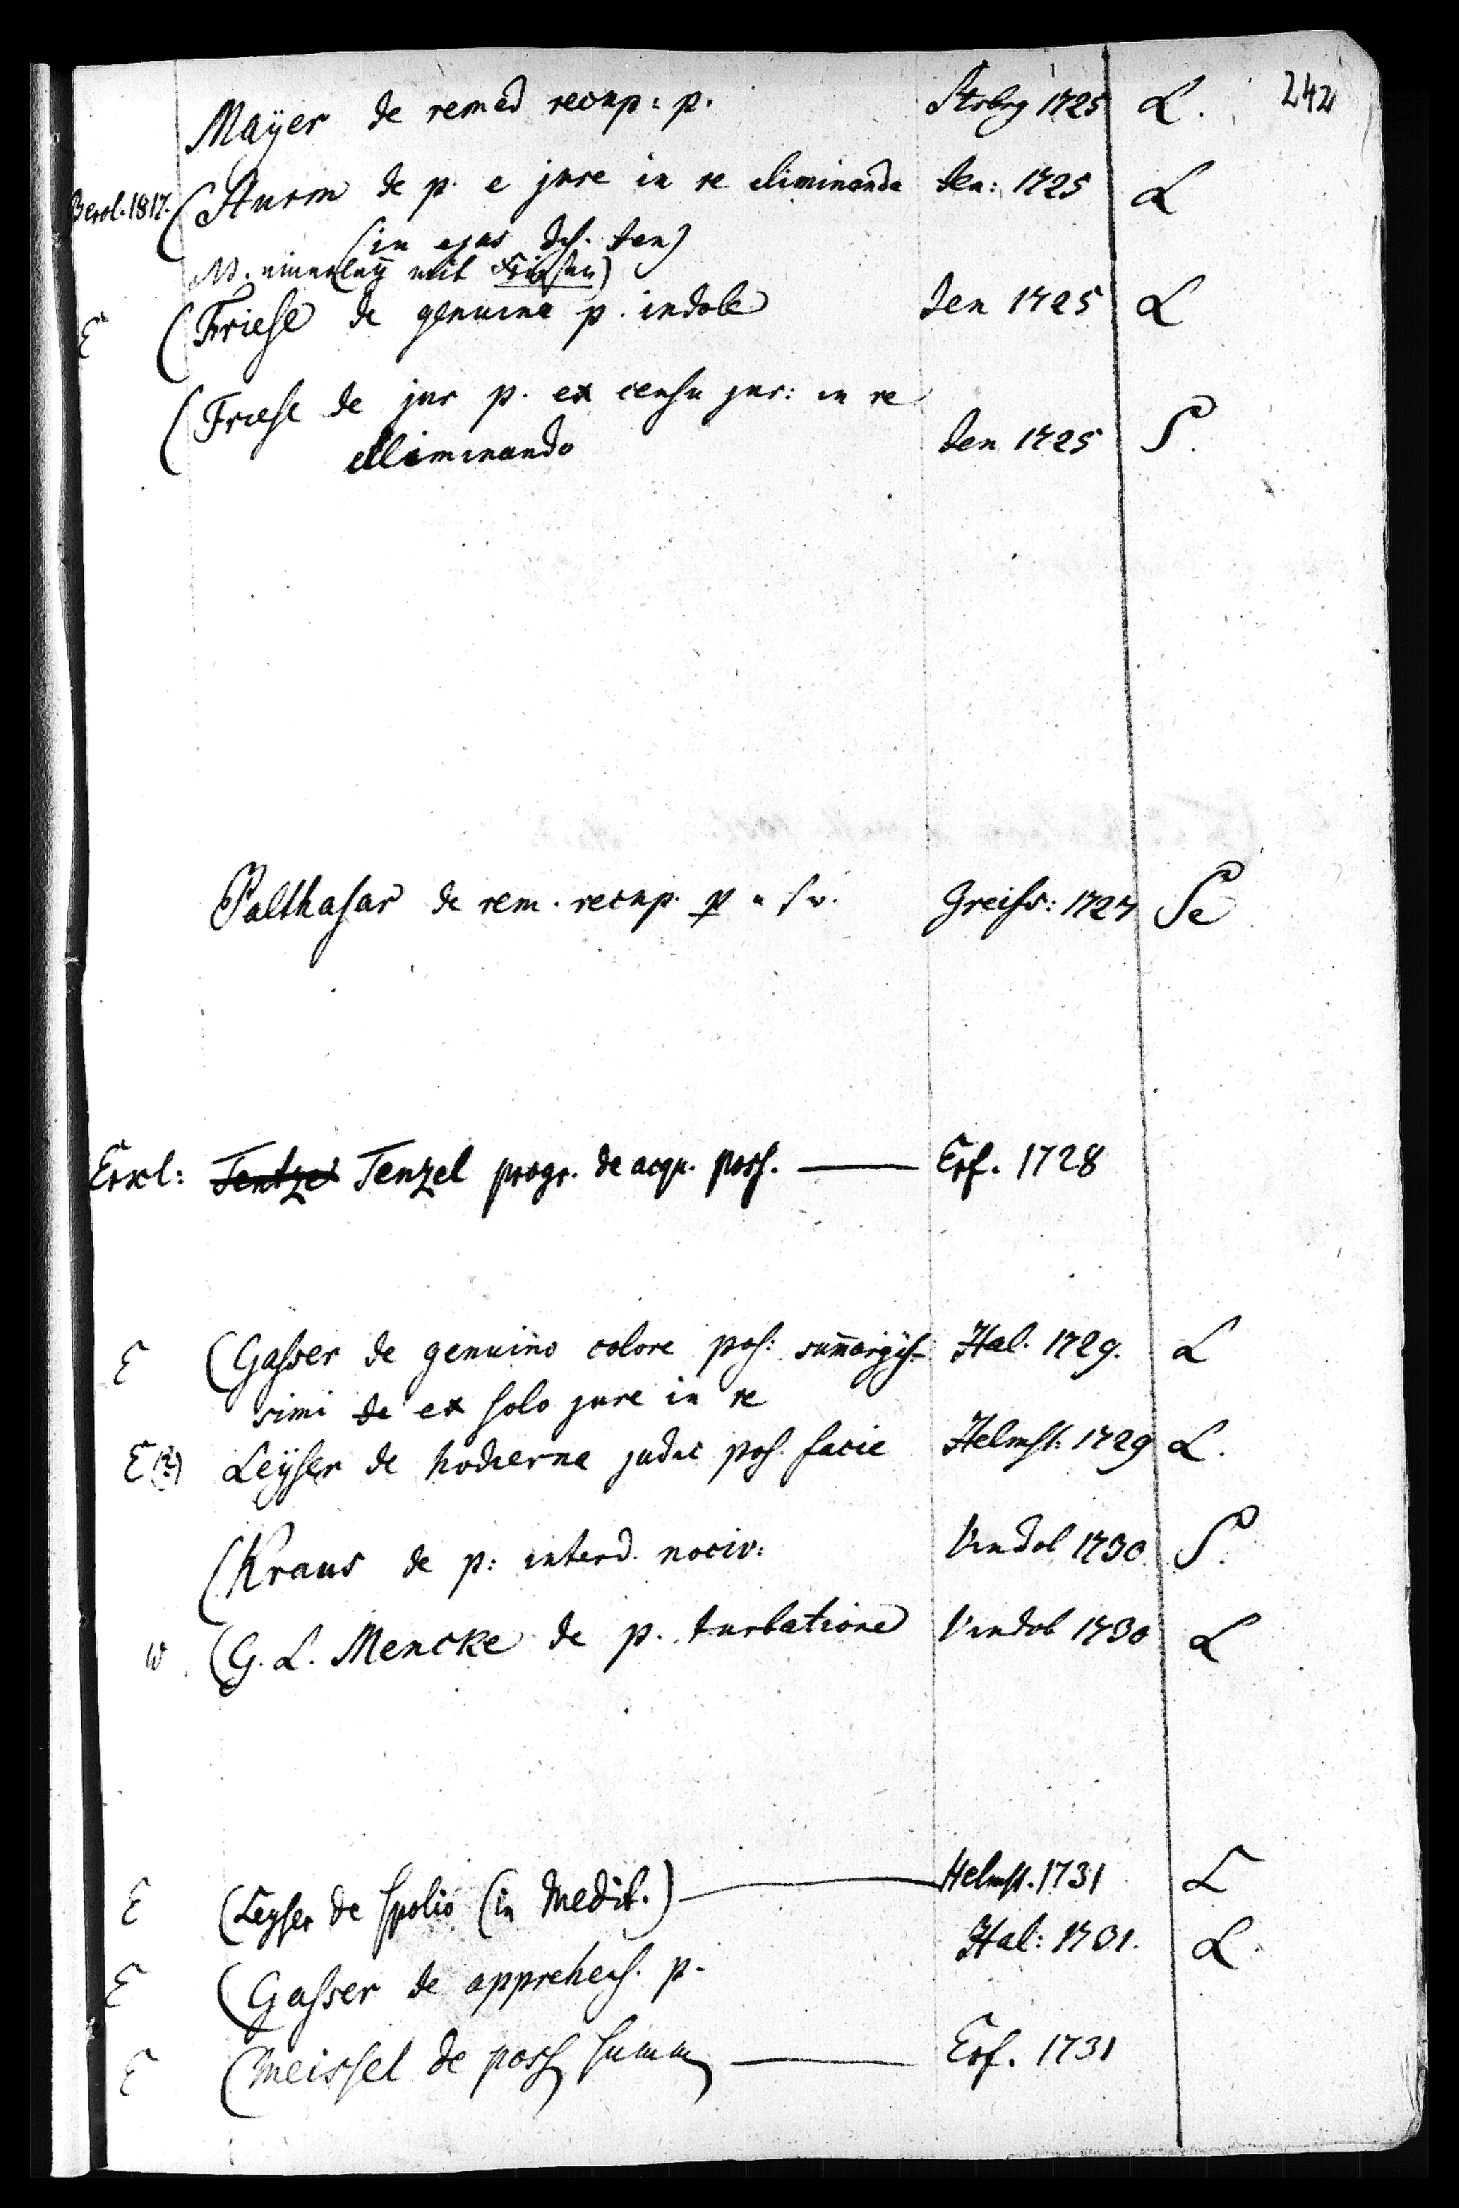 242
Mayer de remed recup: p. Strbrg 1725 L.
Berol. 1817. (Sturm de p. e jure in re eliminanda Jen: 1725 L
(in ejus Jen)
mit Friesen)
E (Friese de genuina p. indole Jen 1725 L
(Friese de jur p. ex censu jur: in re
eliminando Jen 1725 S.
Balthasar de rem. recup. p Greifsw: 1727 Se
Erxl: Tentzel Tenzel progr. de acqu. poss. — Erf. 1728
E (Gasser de genuino colore pos: summariis- Hal. 1729. L
simi de ex solo jure in re
E (?) Leyser de hodierna judic pos. facie Helmst. 1729 L.
(Kraus de p: interd. nociv: Vindob 1730 S.
W (G. L. Mencke de p. turbatione Vindob 1730 L
E (Leyser de spolio (in Medit.) — Helmst. 1731 L
E (Gasser de apprehens. p. Hal: 1731. L.
E (Meissel de poss summ — Erf. 1731